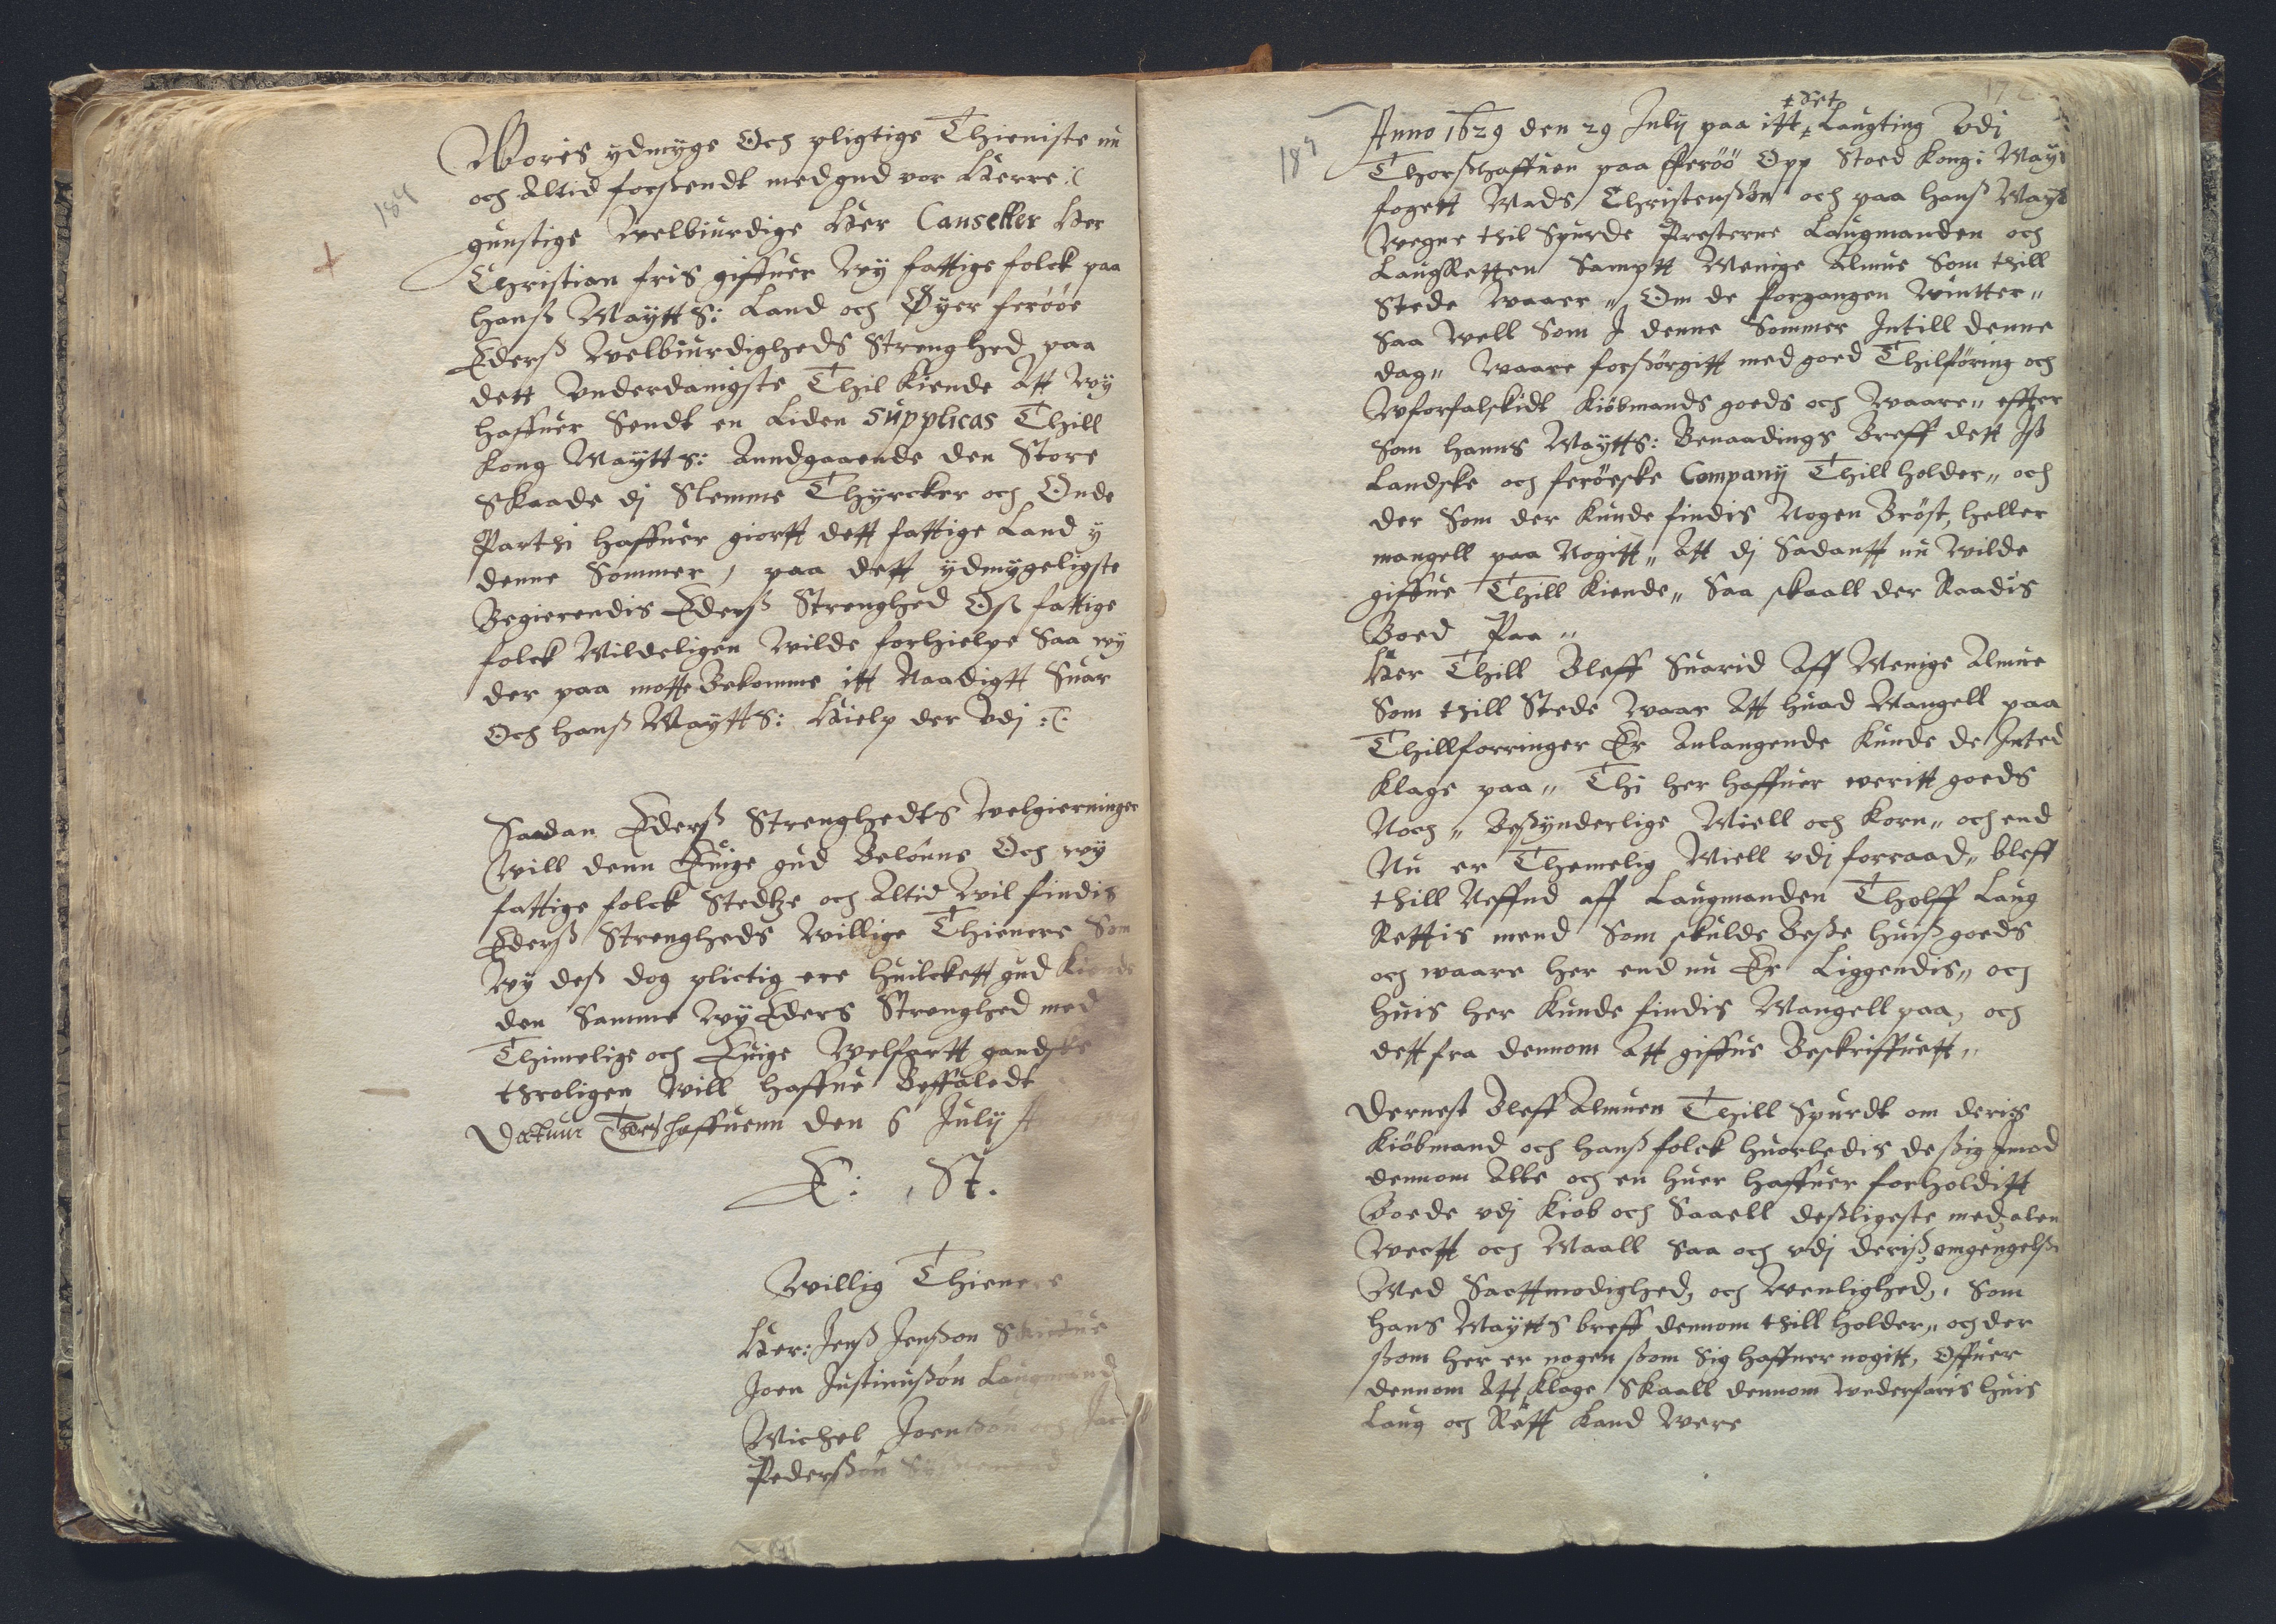 184
Wores ydmyge Och pligtige Thieniste nu
och Altid forsendt med gud vor Herre :(
gunstige Welbiurdige Her Canseller Her
Christian fris giffuer Wy fattige folck paa
hanß Maytts: Land och Øyer ferøøe
Ederß Welbiurdigheds Strenghed paa
dett Vnderdanigste Thil Kiende Att Wy
haffuer Sendt en Liden Supplicas Thill
Kong Maytts: Anndgaaende den Store
Skaade dj Slemme Thyrcker och Onde
Parthi haffuer giortt dett fattige Land y
denne Sommer, paa dett ydmygeligste
Begierendis Ederß Strenghed Oß fattige
folck Mildeligen Wilde forhielpe Saa wy
der paa motte Bekomme itt Naadigtt Suar
Och hanß Maytts: Hielp der Vdj :(:
Saadan Ederß Strenghedts Welgierninger
Will denn Euige gud Belønne Och wy
fattige folck Stedtze och Altid Wil findis
Ederß Strengheds Willige Thienere Som
Wy deß dog plictig ere huilckett gud Kiende
den Samme Wy Eders Strenghed med
Thimelige och Euige Welfartt gandske
throligen Will haffue Beffaledt
Datum Thorshaffuenn den 6 July
E: St.
Willig Thienere
Her: Jenß Jenßøn Skiedue
Joen Justinußøn Laugmand
Michel Joenßøn och
Pederßøn
187
172
Anno 1629 den 29 July paa itt ‡ Laugting Vdj
‡ Set
Thorßhaffuen paa Ferøø Opp Stoed Kong: Mayts
foget Mads Christenßøn och paa hanß Mayts
Wegne thil Spurde Presterne Laugmanden och
Laugretten Samptt Menige Almue Som thill
Stede Waarr,, Om de forgangen Wintter,,
Saa Well Som J denne Sommer Jntill denne
dag,, Waare forßørgitt med goed Thilføring och
Wforfalskidt Kiøbmands goeds och Waare,, effter
Som hanns Maytts: Benaadings Breff dett Jß
Landske och ferøeske Company Thill holder,, och
der Som der Kunde findis Nogen Brøst, heller
mangell paa Nogitt,, Att dj Sadantt nu Wilde
giffue Thill Kiende,, Saa skaall der Raadis
Boed Paa,,
Her Thill Bleff Suarid Aff Menige Almue
Som thill Stede Waar Att huad Mangell paa
Thillforringer Er Anlangende Kunde de Jnted
Klage paa,, Thi her haffuer veritt goeds
Noch,, Beßynderlige Miell och Korn,, och end
Nu er Themelig Miell vdj forraad,, bleff
thill Neffnd aff Laugmanden Tholff Laug
Rettis mend Som skulde Beße huiß goeds
och waare her end nu Er Liggendis,, och
huis her Kunde findis Mangell paa, och
dett fra dennom Att giffue Beskriffuett,,
Dernest Bleff Almuen Thill Spurdt om deris
Kiøbmand och hanß folck huorledis de ßig Jmod
dennom Alle och en huer haffuer forholditt
Baade vdj Kiøb och Saaell desligeste med alen
Wectt och Maall Saa och vdj deriß omgengelße
Med Sacttmodighed, och Wenlighed,, Som
hans Maytts breff dennom thill holder,, och der
ßom her er nogen ßom Sig haffuer nogitt, Offuer
dennom Att Klage Skaall dennom Wederfaris huis
Laug och Rett Kand Were